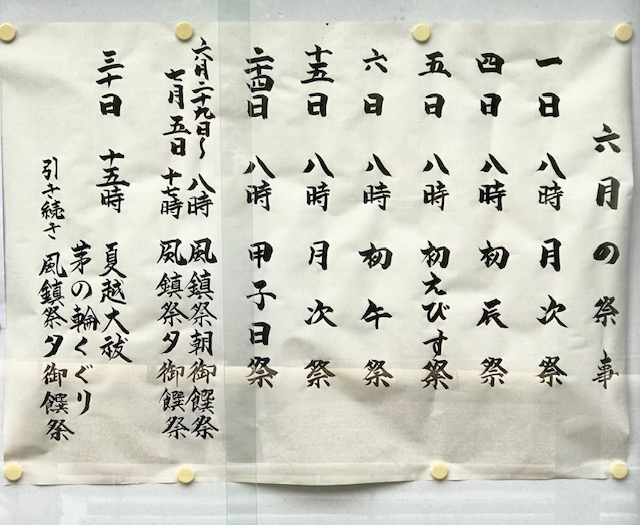 六月の祭事
一日 八時 月次祭
四日 八時 初辰祭
五日 八時 初えびす祭
六日 八時 初午祭
十五日 八時 月次祭
二十四日 八時 甲子日祭
六月二十九日〜 八時 風鎮祭朝御饌祭
七月五日 十七時 風鎮祭夕御饌祭
三十日 十五時 夏越大祓
茅の輪くぐり
引き続き 風鎮祭夕御饌祭